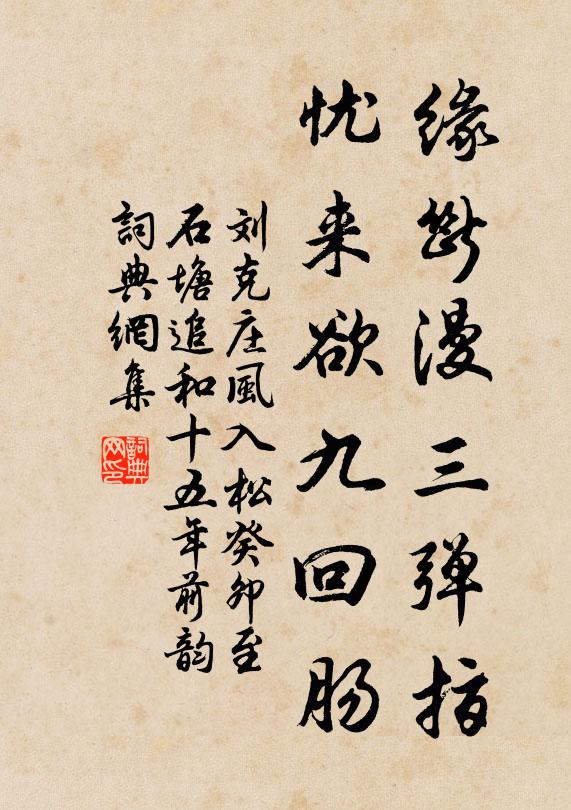 缘断漫三弹指
忧来欲九回肠
刘克庄風入松癸卯至
石塘追和十五年前韵
詞典網集
詞典网印